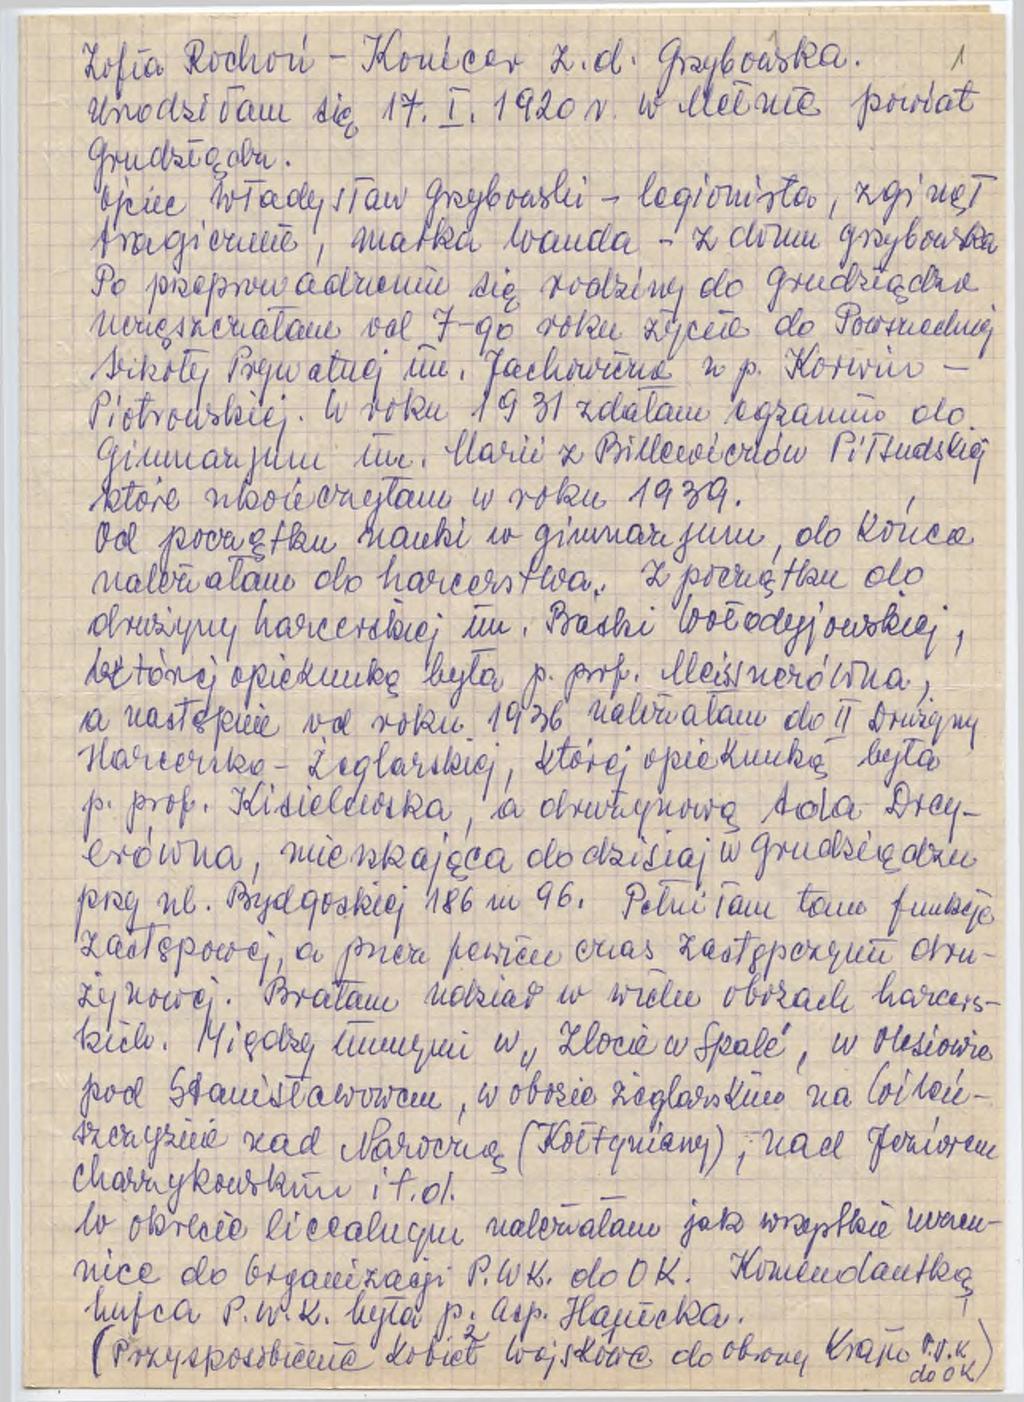 1
Zofia Rochoń - Konicer z.d. Grzybowska.
Urodziłam się 17. I. 1920 r. w Mełnie powiat
Grudziądz.
Ojciec Władysław Grzybowski - legionista, zginął
tragicznie, matka Wanda - z domu Grzybowska
Po przeprowadzeniu się rodziny do Grudziądza
uczęszczałam od 7-go roku życia do Powszechnej
Szkoły Prywatnej im. Jachowicza u p. Korwin -
Piotrowskiej. W roku 1931 zdałam egzamin do
Gimnazjum im. Marii z Billewiczów Piłsudskiej
które ukończyłam w roku 1939.
Od początku nauki w gimnazjum, do końca
należałam do harcerstwa. Z początku do
drużyny harcerskiej im. Baśki Wołodyjowskiej,
której opiekunką była p. prof. Meissnerówna,
a następnie od roku 1936 należałam do II Drużyny
Harcersko - Żeglarskiej, której opiekunką była
p. prof. Kisielewska, a drużynową Ada Drey-
erówna, mieszkająca do dzisiaj w Grudziądzu
przy ul. Bydgoskiej 186 m 96. Pełniłam tam funkcję
zastępowej, a przez pewien czas zastępczynii dru-
żynowej. Brałam udział w wielu obozach harcers-
kich. Między innymi w „Zlocie w Spale", w Olesiowie
pod Stanisławowem, w obozie żeglarskim na Wileń-
szczyźnie nad Naroczią (Kołtyniany), nad Jeziorem
Charzykowskim i t.d.
W okresie licealnym należałam jak wszystkie uczen-
nice do Organizacji P.W.K. do O K. Komendantką
hufca P.W.K. była p. asp. Hapicka.
(Przysposobienie Kobiet 2 Wojskowe do obrony Kraju P.W.K
do O K)